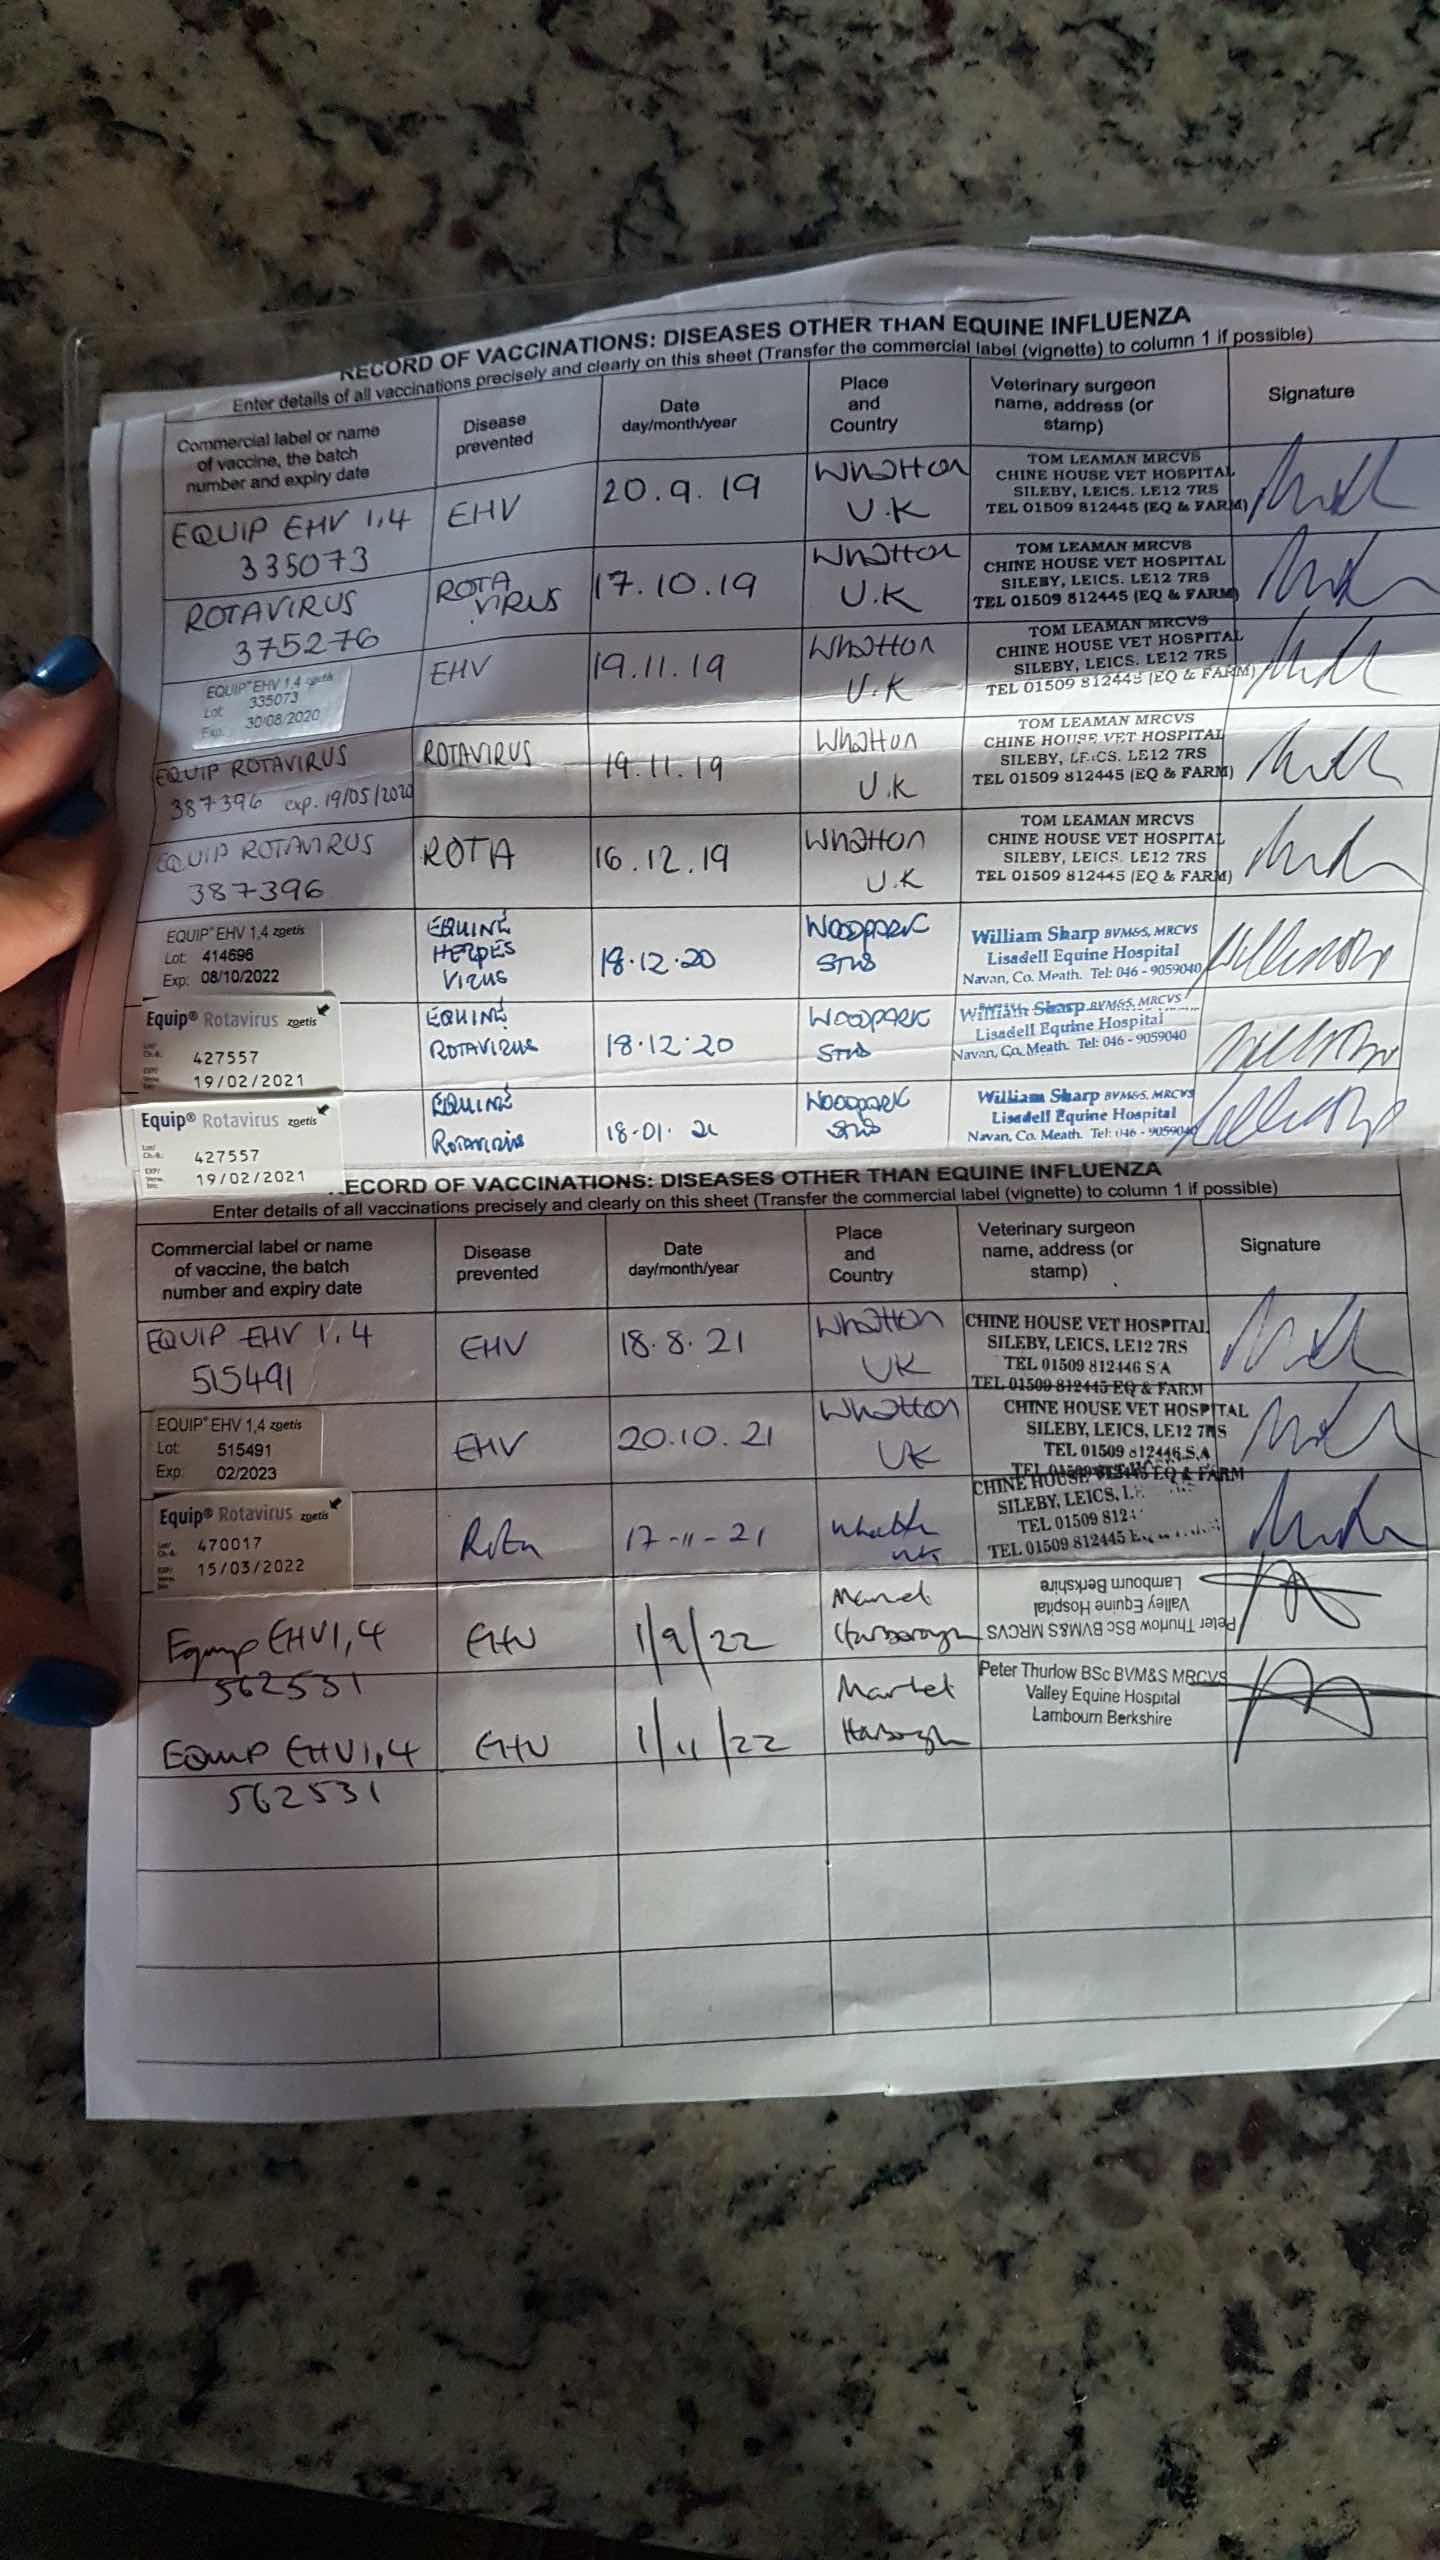 RECORD OF VACCINATIONS: DISEASES OTHER THAN EQUINE INFLUENZA
Enter details of all vaccinations precisely and clearly on this sheet (Transfer the commercial label (vignette) to column 1 if possible)
Commercial label or name
of vaccine, the batch
number and expiry date
Disease
prevented
Date
day/month/year
Place
and
Country
Veterinary surgeon
name, address (or
stamp)
Signature
EQUIP EHV 1,4
335073
EHV
20.9.19
Whatton
U.K
TOM LEAMAN MRCVS
CHINE HOUSE VET HOSPITAL
SILEBY, LEICS. LE12 7RS
TEL 01509 812445 (EQ & FARM)
ROTAVIRUS
375276
ROTA
VIRUS
17.10.19
Whatton
U.K
TOM LEAMAN MRCVS
CHINE HOUSE VET HOSPITAL
SILEBY, LEICS. LE12 7RS
TEL 01509 812445 (EQ & FARM)
EQUIP® EHV 1,4 zoetis
Lot: 335073
Exp.: 30/08/2020
EHV
19.11.19
Whatton
U.K
TOM LEAMAN MRCVS
CHINE HOUSE VET HOSPITAL
SILEBY, LEICS. LE12 7RS
TEL 01509 812445 (EQ & FARM)
EQUIP ROTAVIRUS
387396 exp. 19/05/2020
ROTAVIRUS
19.11.19
Whatton
U.K
TOM LEAMAN MRCVS
CHINE HOUSE VET HOSPITAL
SILEBY, LEICS. LE12 7RS
TEL 01509 812445 (EQ & FARM)
EQUIP ROTAVIRUS
387396
ROTA
16.12.19
Whatton
U.K
TOM LEAMAN MRCVS
CHINE HOUSE VET HOSPITAL
SILEBY, LEICS. LE12 7RS
TEL 01509 812445 (EQ & FARM)
EQUIP® EHV 1,4 zoetis
Lot: 414696
Exp: 08/10/2022
EQUINE
HERPES
VIRUS
18.12.20
WOODPARK
STUD
William Sharp BVM&S, MRCVS
Lisadell Equine Hospital
Navan, Co. Meath. Tel: 046 - 9059040
Equip® Rotavirus zoetis
427557
19/02/2021
EQUINE
ROTAVIRUS
18.12.20
WOODPARK
STUD
William Sharp BVM&S, MRCVS
Lisadell Equine Hospital
Navan, Co. Meath. Tel: 046 - 9059040
Equip® Rotavirus zoetis
427557
19/02/2021
EQUINE
ROTAVIRUS
18.01.21
WOODPARK
STUD
William Sharp BVM&S, MRCVS
Lisadell Equine Hospital
Navan, Co. Meath. Tel: 046 - 9059040
ECORD OF VACCINATIONS: DISEASES OTHER THAN EQUINE INFLUENZA
Enter details of all vaccinations precisely and clearly on this sheet (Transfer the commercial label (vignette) to column 1 if possible)
Commercial label or name
of vaccine, the batch
number and expiry date
Disease
prevented
Date
day/month/year
Place
and
Country
Veterinary surgeon
name, address (or
stamp)
Signature
EQUIP EHV 1.4
515491
EHV
18.8.21
Whatton
UK
CHINE HOUSE VET HOSPITAL
SILEBY, LEICS, LE12 7RS
TEL 01509 812446 S A
TEL 01509 812445 EQ & FARM
EQUIP® EHV 1,4 zoetis
Lot: 515491
Exp: 02/2023
EHV
20.10.21
Whatton
UK
CHINE HOUSE VET HOSPITAL
SILEBY, LEICS, LE12 7RS
TEL 01509 812446 S.A
TEL 01509 812445 EQ & FARM
Equip® Rotavirus zoetis
470017
15/03/2022
Rota
17-11-21
Whatton
UK
CHINE HOUSE VET HOSPITAL
SILEBY, LEICS, L
TEL 01509 812
TEL 01509 812445 E
Equip EHV1,4
562531
EHV
1/9/22
Market
Harborough
Peter Thurlow BSc BVM&S MRCVS
Valley Equine Hospital
Lambourn Berkshire
Equip EHV1,4
562531
EHV
1/11/22
Market
Harborough
Peter Thurlow BSc BVM&S MRCVS
Valley Equine Hospital
Lambourn Berkshire